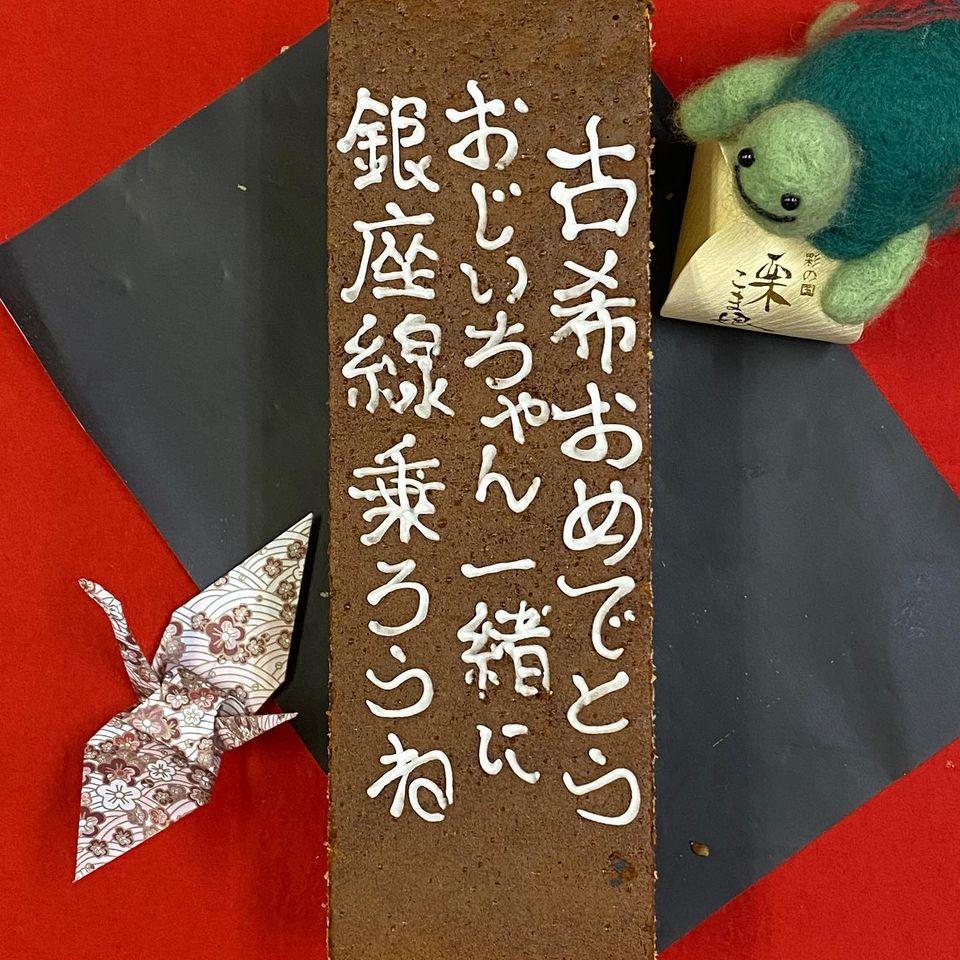 古希おめでとう
おじいちゃん一緒に
銀座線乗ろうね
彩の国
栗